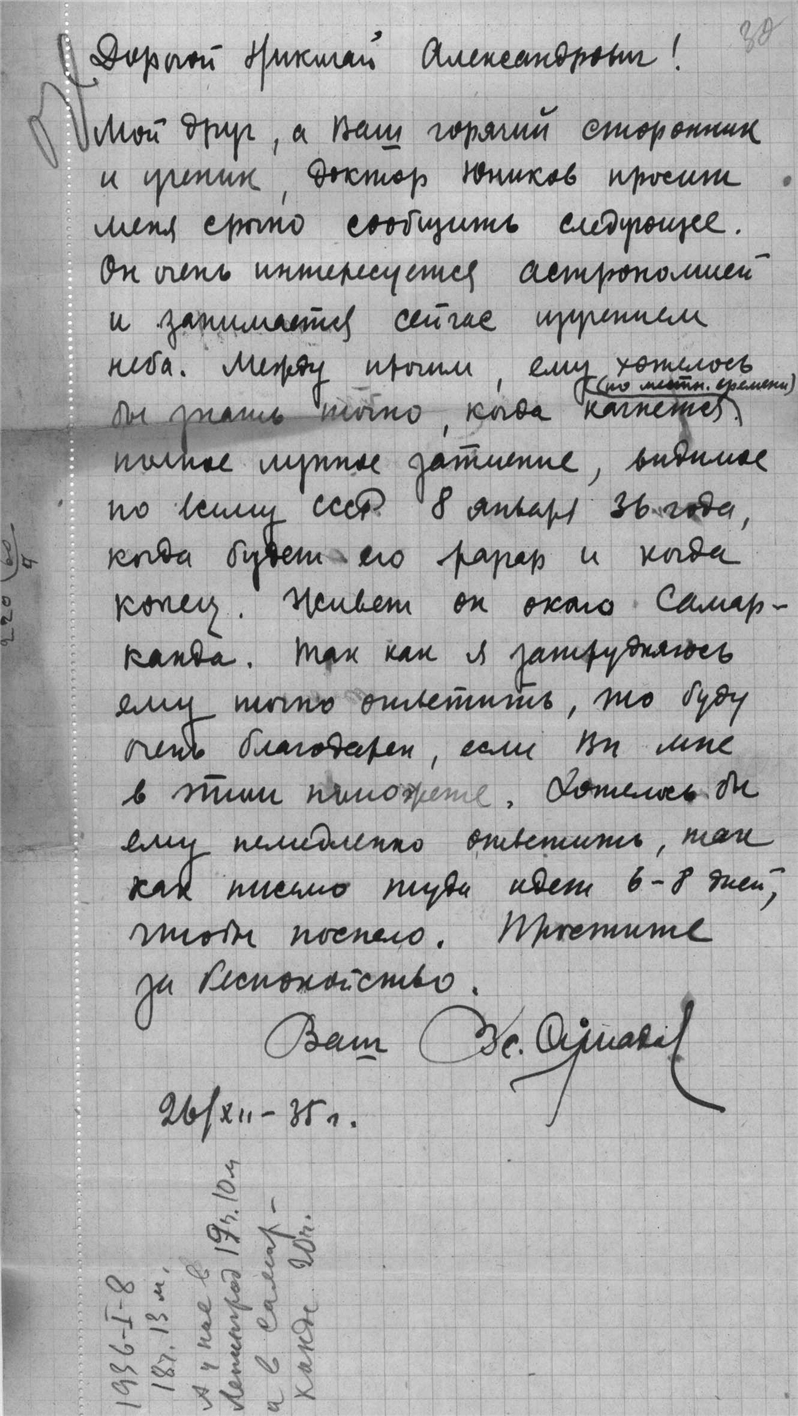 30
Дорогой Николай Александрович!
Мой друг, а Ваш горячий сторонник
и ученик, доктор Юников просит
меня срочно сообщить следующее.
Он очень интересуется астрономией
и занимается сейчас изучением
неба. Между прочим, ему хотелось
(по местн. времени)
бы знать точно, когда начнется
полное лунное затмение, видимое
по всему СССР 8 января 36 года,
когда будет его разгар и когда
конец. Живет он около Самар-
канда. Так как я затрудняюсь
ему точно ответить, то буду
очень благодарен, если Вы мне
в этом поможете. Хотелось бы
ему немедленно ответить, так
как письмо туда идет 6-8 дней,
чтобы поспело. Простите
за беспокойство.
Ваш Вс.
26/XII-35 г.
1936-I-8
18ч. 13 м.
А у нас в
Ленинград 19ч. 10м
а в Самар-
канде 20ч.
220 60
4